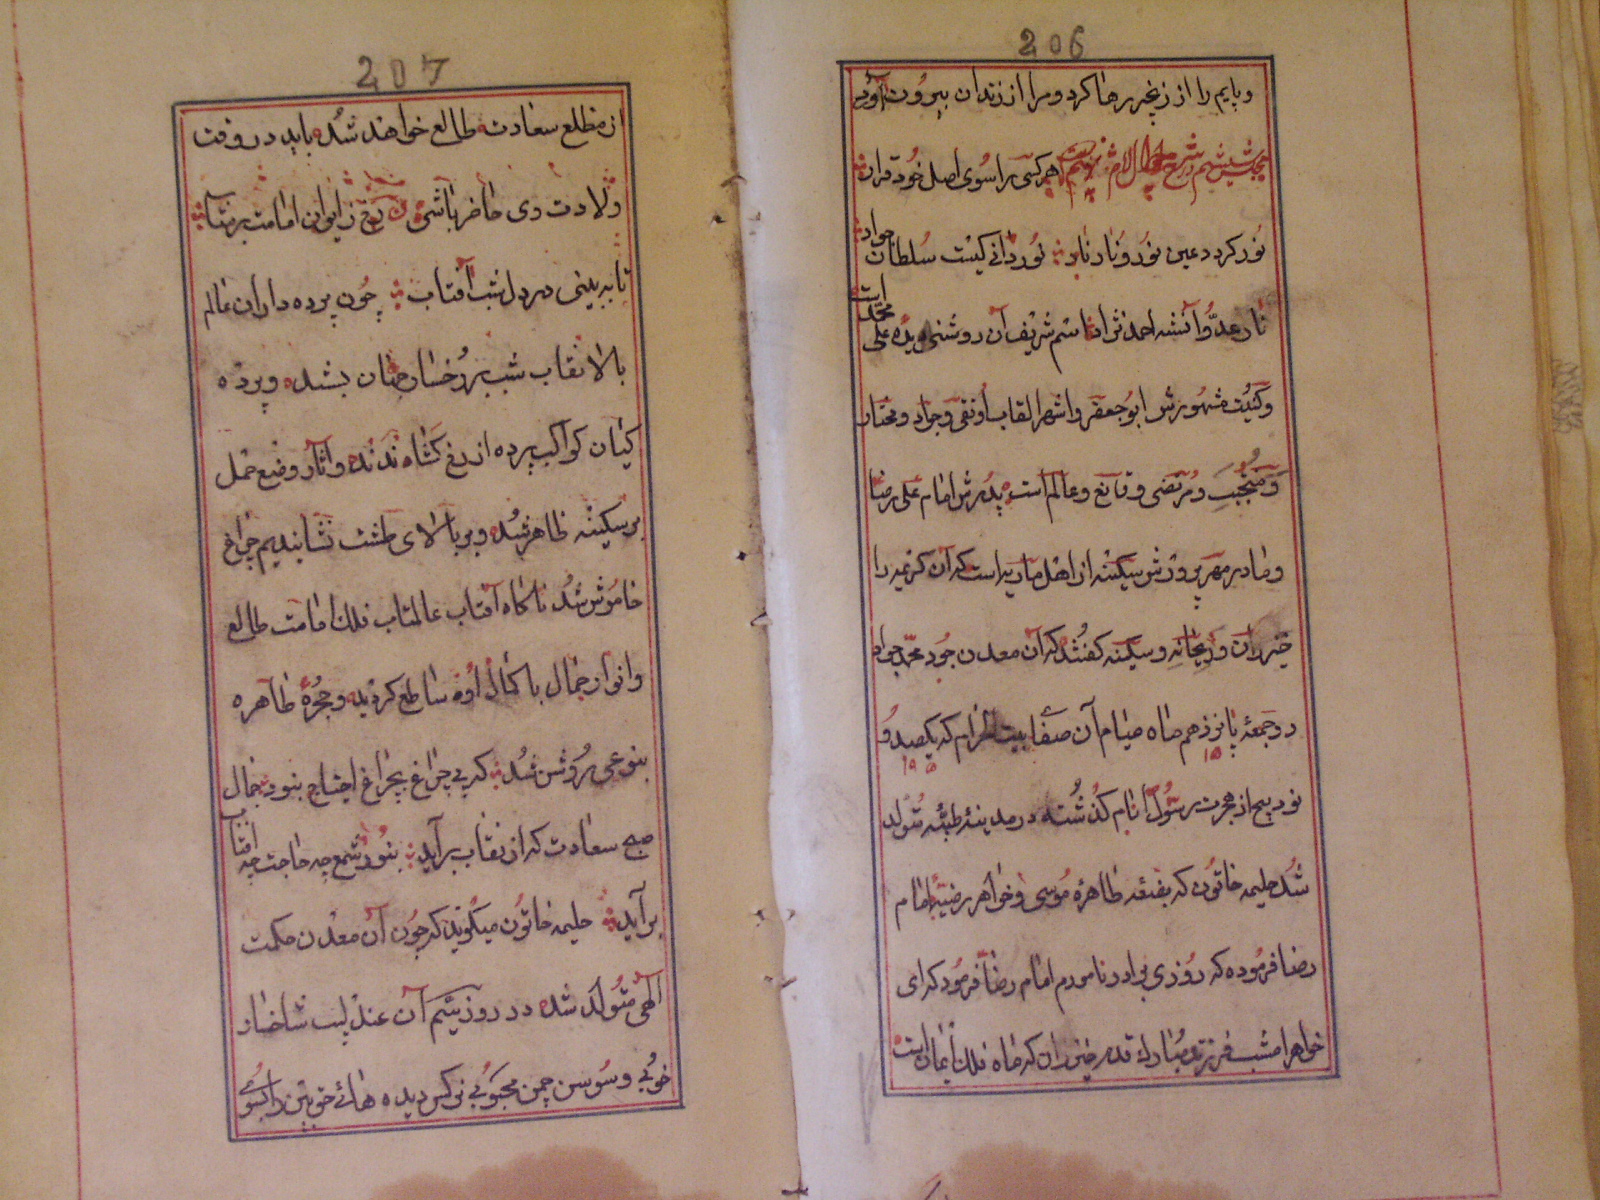 206
و پایم را از زنجیر رها کرد و مرا از زندان بیرون آورد
هر کسی را سوی اصل خود قرار
نور کرد عین نور و نار نار نور دانی کیست سلطان جواد
نار عدو آتشه احمد نژاد اسم شریف آن روشنی دیده علی محمد است
و کنیت مشهورش ابو جعفر و اشهر القاب او نقی و جواد و مختار
و منتجب و مرتضی و قانع و عالم است پدرش امام علی رضا
و مادر مهر پرورش سکینه از اهل ماریه است که آن کریمه را
خیزران و ریحانه و سکینه گفتند که آن معدن جود محمد جواد
در جمعهٔ پانزدهم ماه صیام آن صفا بیت الحرام که یکصد و
۱۵ ۱۹۵
نود پنج از هجرت رسول انام گذشته در مدینهٔ طیبه متولد
شد حلیمه خاتون که بضعهٔ طاهرهٔ موسی و خواهر رضیهٔ امام
رضا فرموده که روزی برادر نامورم امام رضا فرمود که ای
خواهر امشب فرزند مبارک قدم خیزران که ماه فلک ایمان است
207
از مطلع سعادت طالع خواهند شد باید در وقت
ولادت وی حاضر باشی رخ ز ایوان امامت بر متاب
تا به بینی در دل شب آفتاب چون پرده داران عالم
بالا نقاب شب بر رخسار جهان بشده و پرده
کیان کواکب پرده از رخ گشاه ندند و آثار وضع حمل
بر سکینه ظاهر شده ویر بالای طشت نشانیدیم چراغ
خاموش شد ناگاه آفتاب عالمتاب فلک امامت طالع
و انوار جمال با کمال او ساطع گردید و حجرهٔ طاهره
بنوعی روشن شد که بی چراغ بچراغ احتیاج بنود جمال
صبح سعادت که از نقاب برآید بنور شمع چه حاجت چه افتاب
برآید حلیمه خاتون میگویند که چون آن معدن حکمت
الهی متولد شد در روز سیم آن عندلیب شاخسار
خوبی و سوسن چمن محبوبی نرگس دیده های حق بین را بسوی